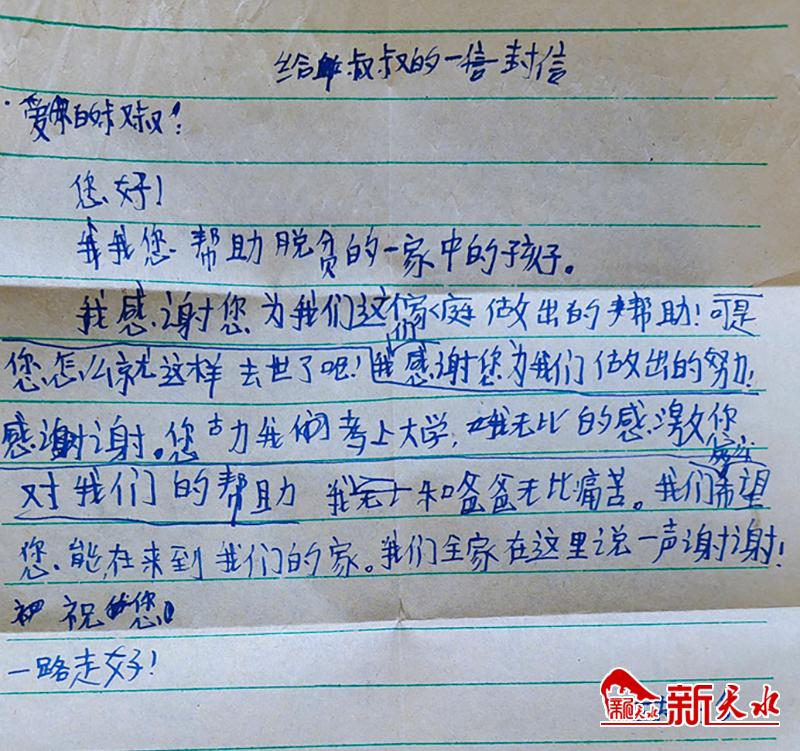 给叔叔的一封信
爱的叔叔!
您好!
我您帮助脱贫的一家中的孩子。
我感谢您为我们这个家庭做出的帮助!可是
您怎么就这样去世了呢!我感谢您为我们做出的努力!
感谢谢。您力我们考上大学,我无比的感激你
对我们的帮助 我和爸爸无比痛苦。我们希望
您能在来到我们的家。我们全家在这里说一声谢谢!
祝您
一路走好!
新天水